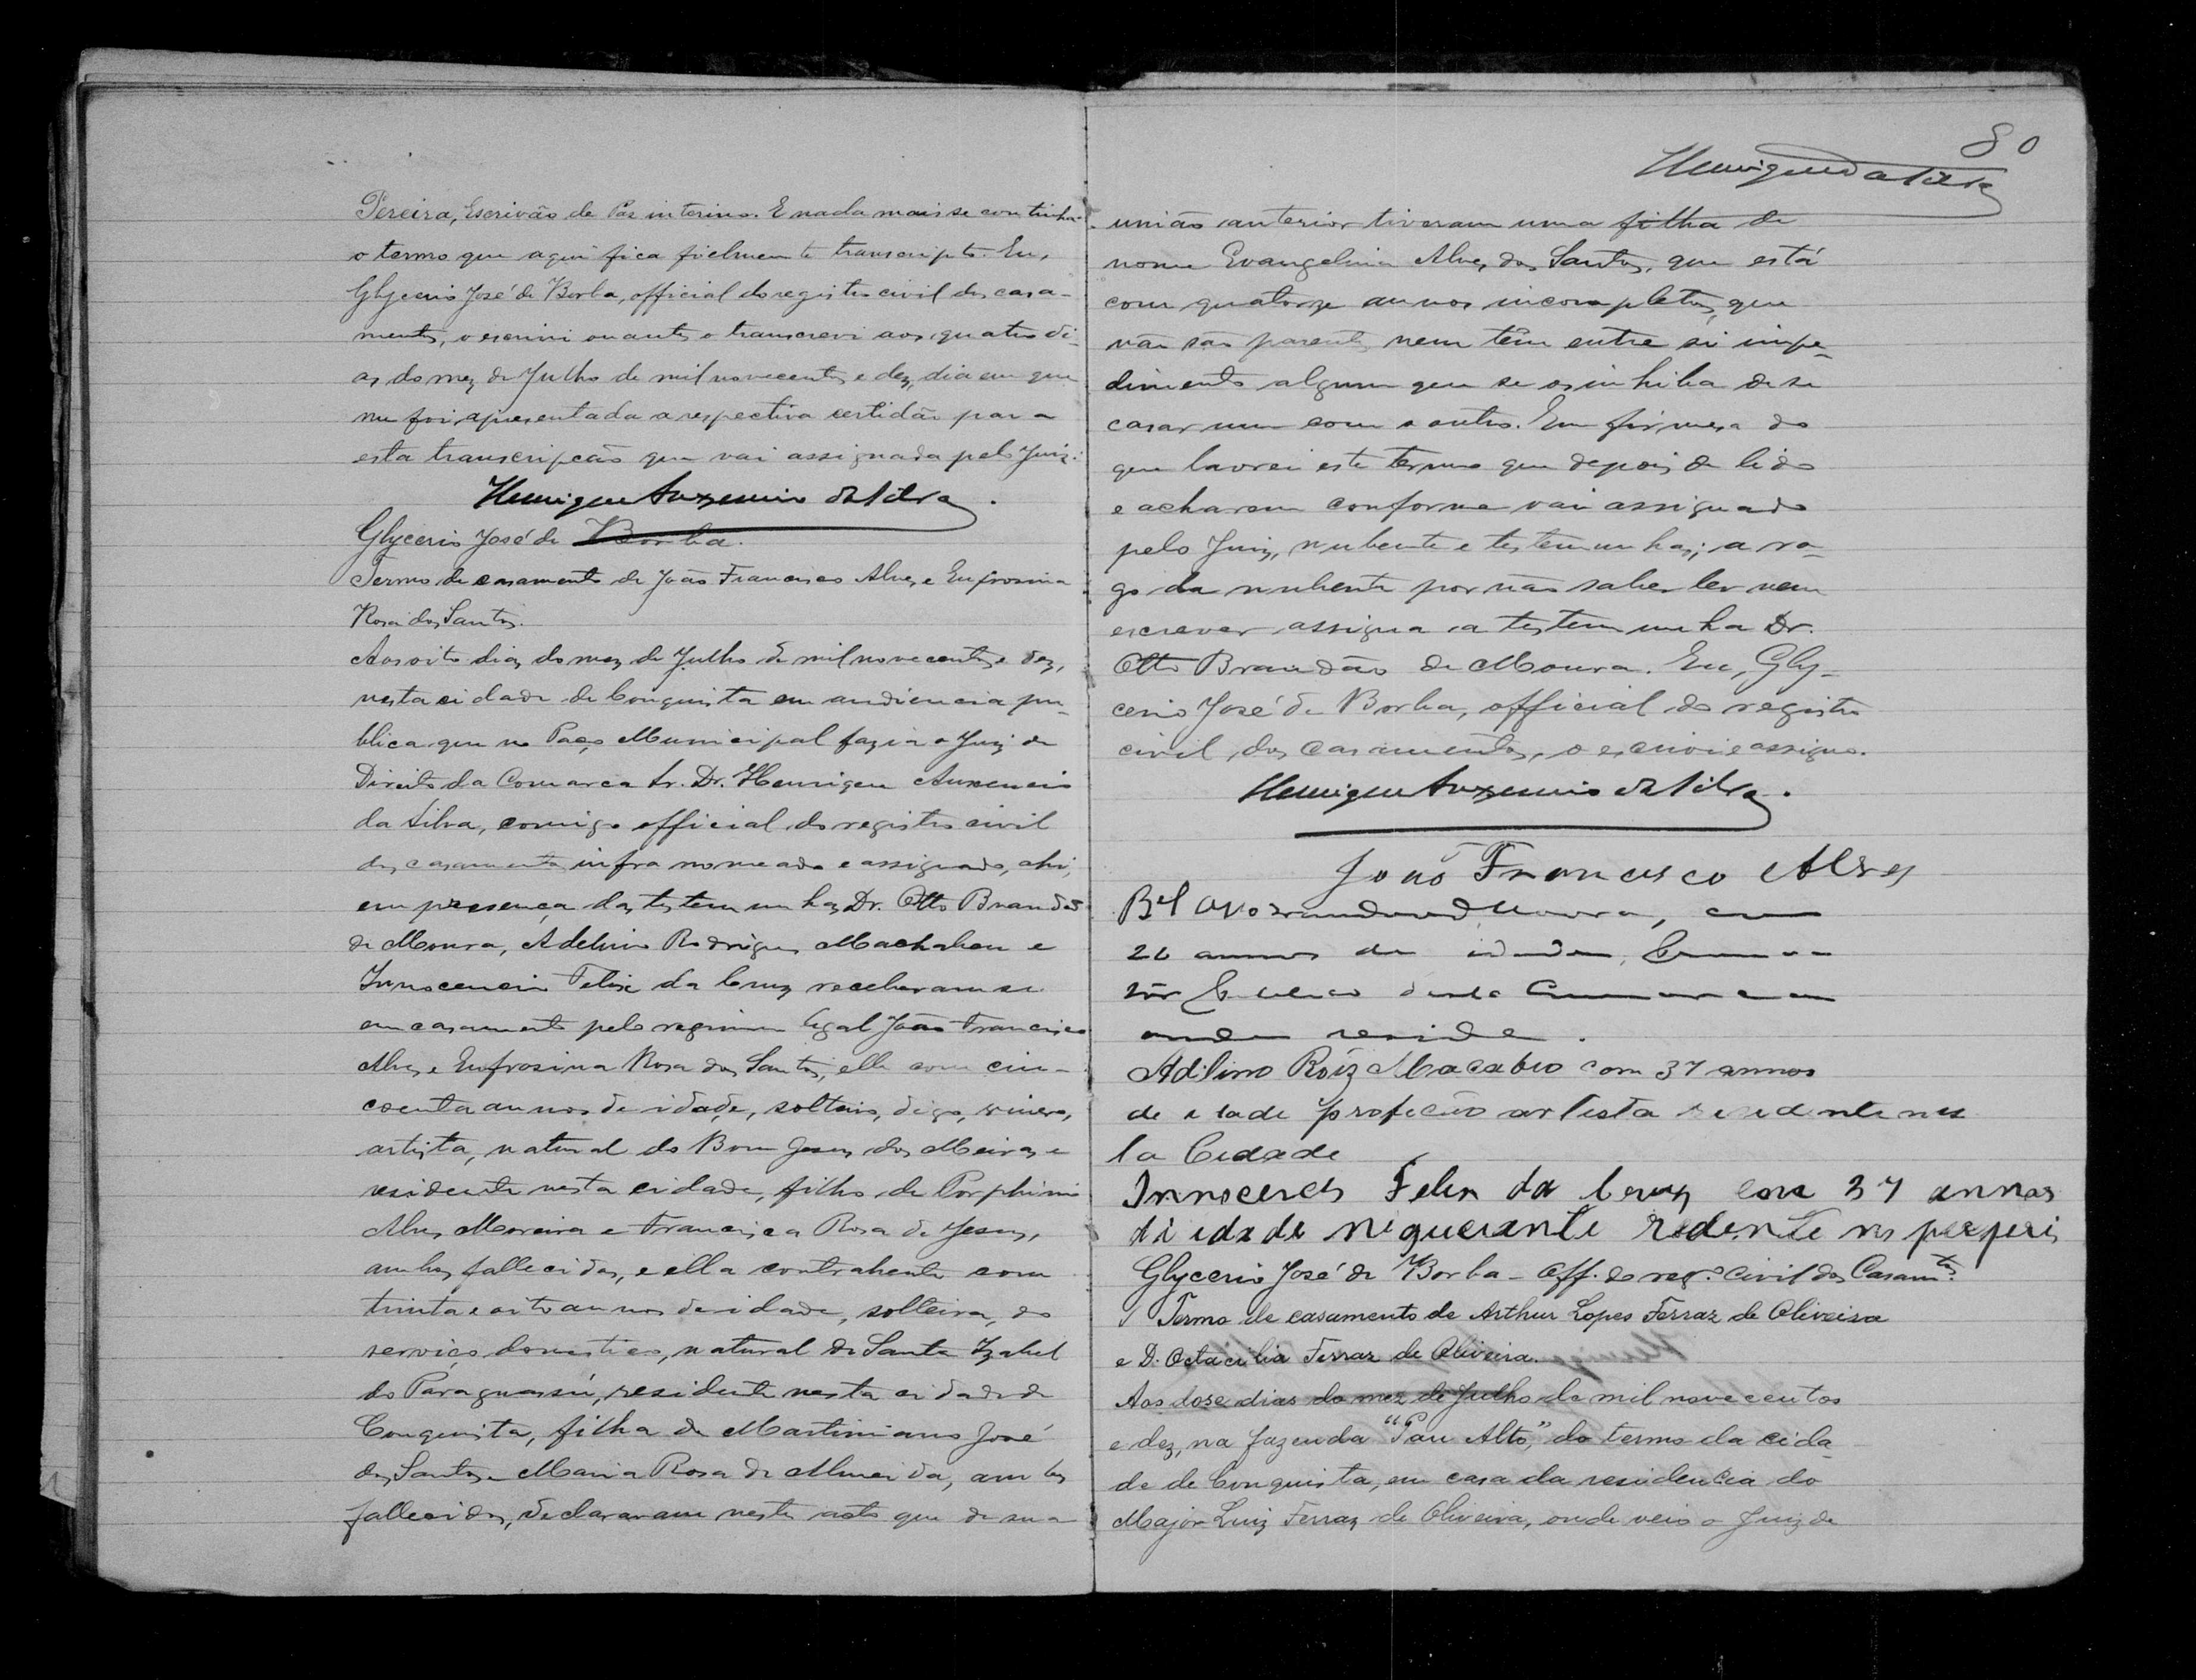 Pereira, Escrivão de Paz interino. E nada mais se continha
o termo que aqui fica fielmente transcripto. Eu,
Glycerio José de Borba, official do registro civil dos casa-
mentos, o escrivi ou antes o transcrevi aos quatro di-
as do mez de Julho de mil novecentos e dez, dia em que
me foi apresentada a respectiva certidão para
esta transcripção que vai assignada pelo Juiz.
Henrique Auxencio da Silva.
Glycerio José de Borba.
Termo de casamento de João Francisco Alves e Eufrosina
Rosa dos Santos.
Aos oito dias do mez de Julho de mil novecentos e dez,
nesta cidade de Conquista em audiencia pu-
blica que no Paço Municipal fazia o Juiz de
Direito da Comarca Sr. Dr. Henrique Auxencio
da Silva, comigo official do registro civil
dos casamentos infra nomeado e assignado, ahi,
em presença das testemunhas Dr. Otto Brandão
de Moura, Adelino Rodrigues Machabeu e
Innocencio Felix da Cruz receberam se
em casamento pelo regimen legal João Francisco
Alves e Eufrosina Rosa dos Santos, elle com cin-
coenta annos de idade, solteiro, digo, viuvo,
artista, natural do Bom Jesus dos Meiras e
residente nesta cidade, filho de Porphirio
Alves Moreira e Francisca Rosa de Jesus,
ambos fallecidos, e ella contrahente com
trinta e oito annos de idade, solteira, do
serviço domestico, natural de Santa Izabel
do Paraguassú, residente nesta cidade de
Conquista, filha de Martiniano José
dos Santos e Maria Rosa de Almeida, ambos
fallecidos, declararam neste acto que de sua
80
Henrique da Silva
união anterior tiveram uma filha de
nome Evangelina Alves dos Santos, que está
com quatorze annos incompletos, que
não são parentes nem têm entre si impe-
dimento algum que se os inhiba de se
casar um com o outro. Em firmesa do
que lavrei este termo que depois de lido
e acharem conforme vai assignado
pelo Juiz, nubente e testemunhas; a ro-
go da nubente por não saber ler nem
escrever assigna a testemunha Dr.
Otto Brandão de Moura. Eu, Gly-
cerio José de Borba, official do registro
civil dos casamentos, o escrivi e assigno.
Henrique Auxencio da Silva.
João Francisco Alves
Bel Otto Brandão de Moura, com
26 annos de idade,
desta Comarca
onde reside.
Adilino Roiz Macabeo com 37 annos
de idade profeção artista residente nes
ta Cidade
Innocencio Felix da Cruz com 37 annos
di idade
Glycerio José de Borba - Off. do regº. Civil dos Casamtos.
Termo de casamento de Arthur Lopes Ferraz de Oliveira
e D. Octacilia Ferraz de Oliveira.
Aos dose dias do mez de Julho de mil novecentos
e dez, na fazenda "Pau Alto", do termo da cida
de de Conquista, em casa da residencia do
Major Luiz Ferraz de Oliveira, onde veio o Juiz de